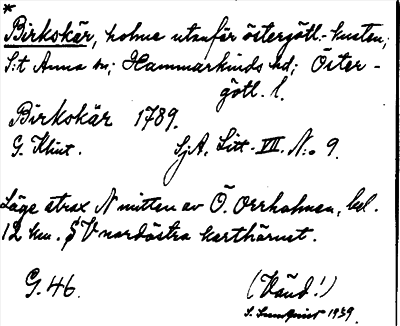 *
Birkokär, holme utanför östergötl.-kusten;
S:t Anna sn; Hammarkinds hd; Öster-
götl. l.
Birkokär 1789.
G. Klint. SjA, Litt. VII. N:o 9.
Läge strax N mitten av Ö. Orrholmen, bel.
12 km. § V nordöstra karthörnet.
G. 46. (Vänd!)
S. Lundqvist 1939.